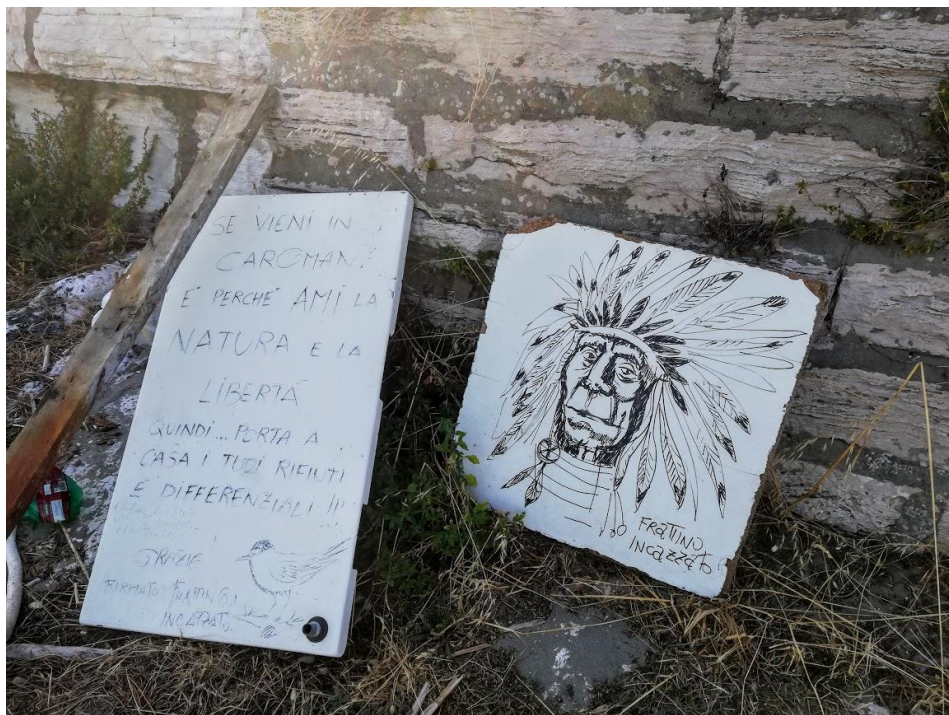 SE VIENI IN
CAROMAN..
È PERCHÈ AMI LA
NATURA E LA
LIBERTÀ
QUINDI... PORTA A
CASA I TUOI RIFIUTI
E DIFFERENZIALI !!!
GRAZIE
FIRMATO: FRATINO
INCAZZATO.
FRATINO
INCAZZATO